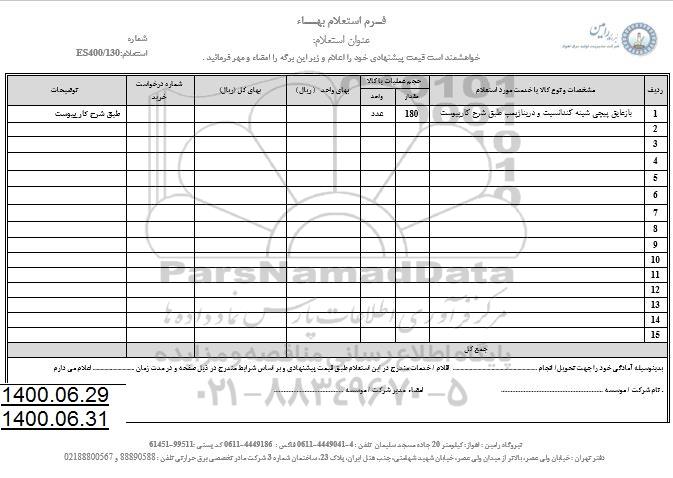 فـرم استعلام بهـــاء
عنوان استعلام:
شماره
استعلام:ES400/130
خواهشمند است قیمت پیشنهادی خود را اعلام و زیر این برگه را امضاء و مهر فرمائید .
ردیف مشخصات و نوع کالا یا خدمت مورد استعلام حجم عملیات یا کالا بهای واحد ( ریال) بهای کل (ریال) شماره درخواست خرید توضیحات
مقدار واحد
1 بازعایق پیچی شینه کندانسیت و دریناژپمپ طبق شرح کارپیوست 180 عدد طبق شرح کار پیوست
2
3
4
5
6
7
8
9
10
11
12
13
14
15
جمع کل
ParsNamadData
مرکز فرآوری اطلاعات پارس نماد داده ها
پایگاه اطلاع رسانی مناقصه و مزایده
۰۲۱-۸۸۳۴۹۶۷۰-۵
بدینوسیله آمادگی خود را جهت تحویل/ انجام .......... اقلام / خدمات مندرج در این استعلام طبق قیمت پیشنهادی و بر اساس شرایط مندرج در ذیل صفحه و در مدت زمان .......... اعلام می دارم
. نام شرکت / موسسه .......... امضاء مدیر شرکت / موسسه ..........
1400.06.29
1400.06.31
نیروگاه رامین : اهواز: کیلومتر 20 جاده مسجد سلیمان تلفن : 4-4449041-0611 فاکس : 4449186-0611 کد پستی :99511-61451
دفتر تهران : خیابان ولی عصر، بالاتر از میدان ولی عصر، خیابان شهید شهامتی، جنب هتل ایران، پلاک 23، ساختمان شماره 3 شرکت مادر تخصصی برق حرارتی تلفن : 88890588 و 02188800567